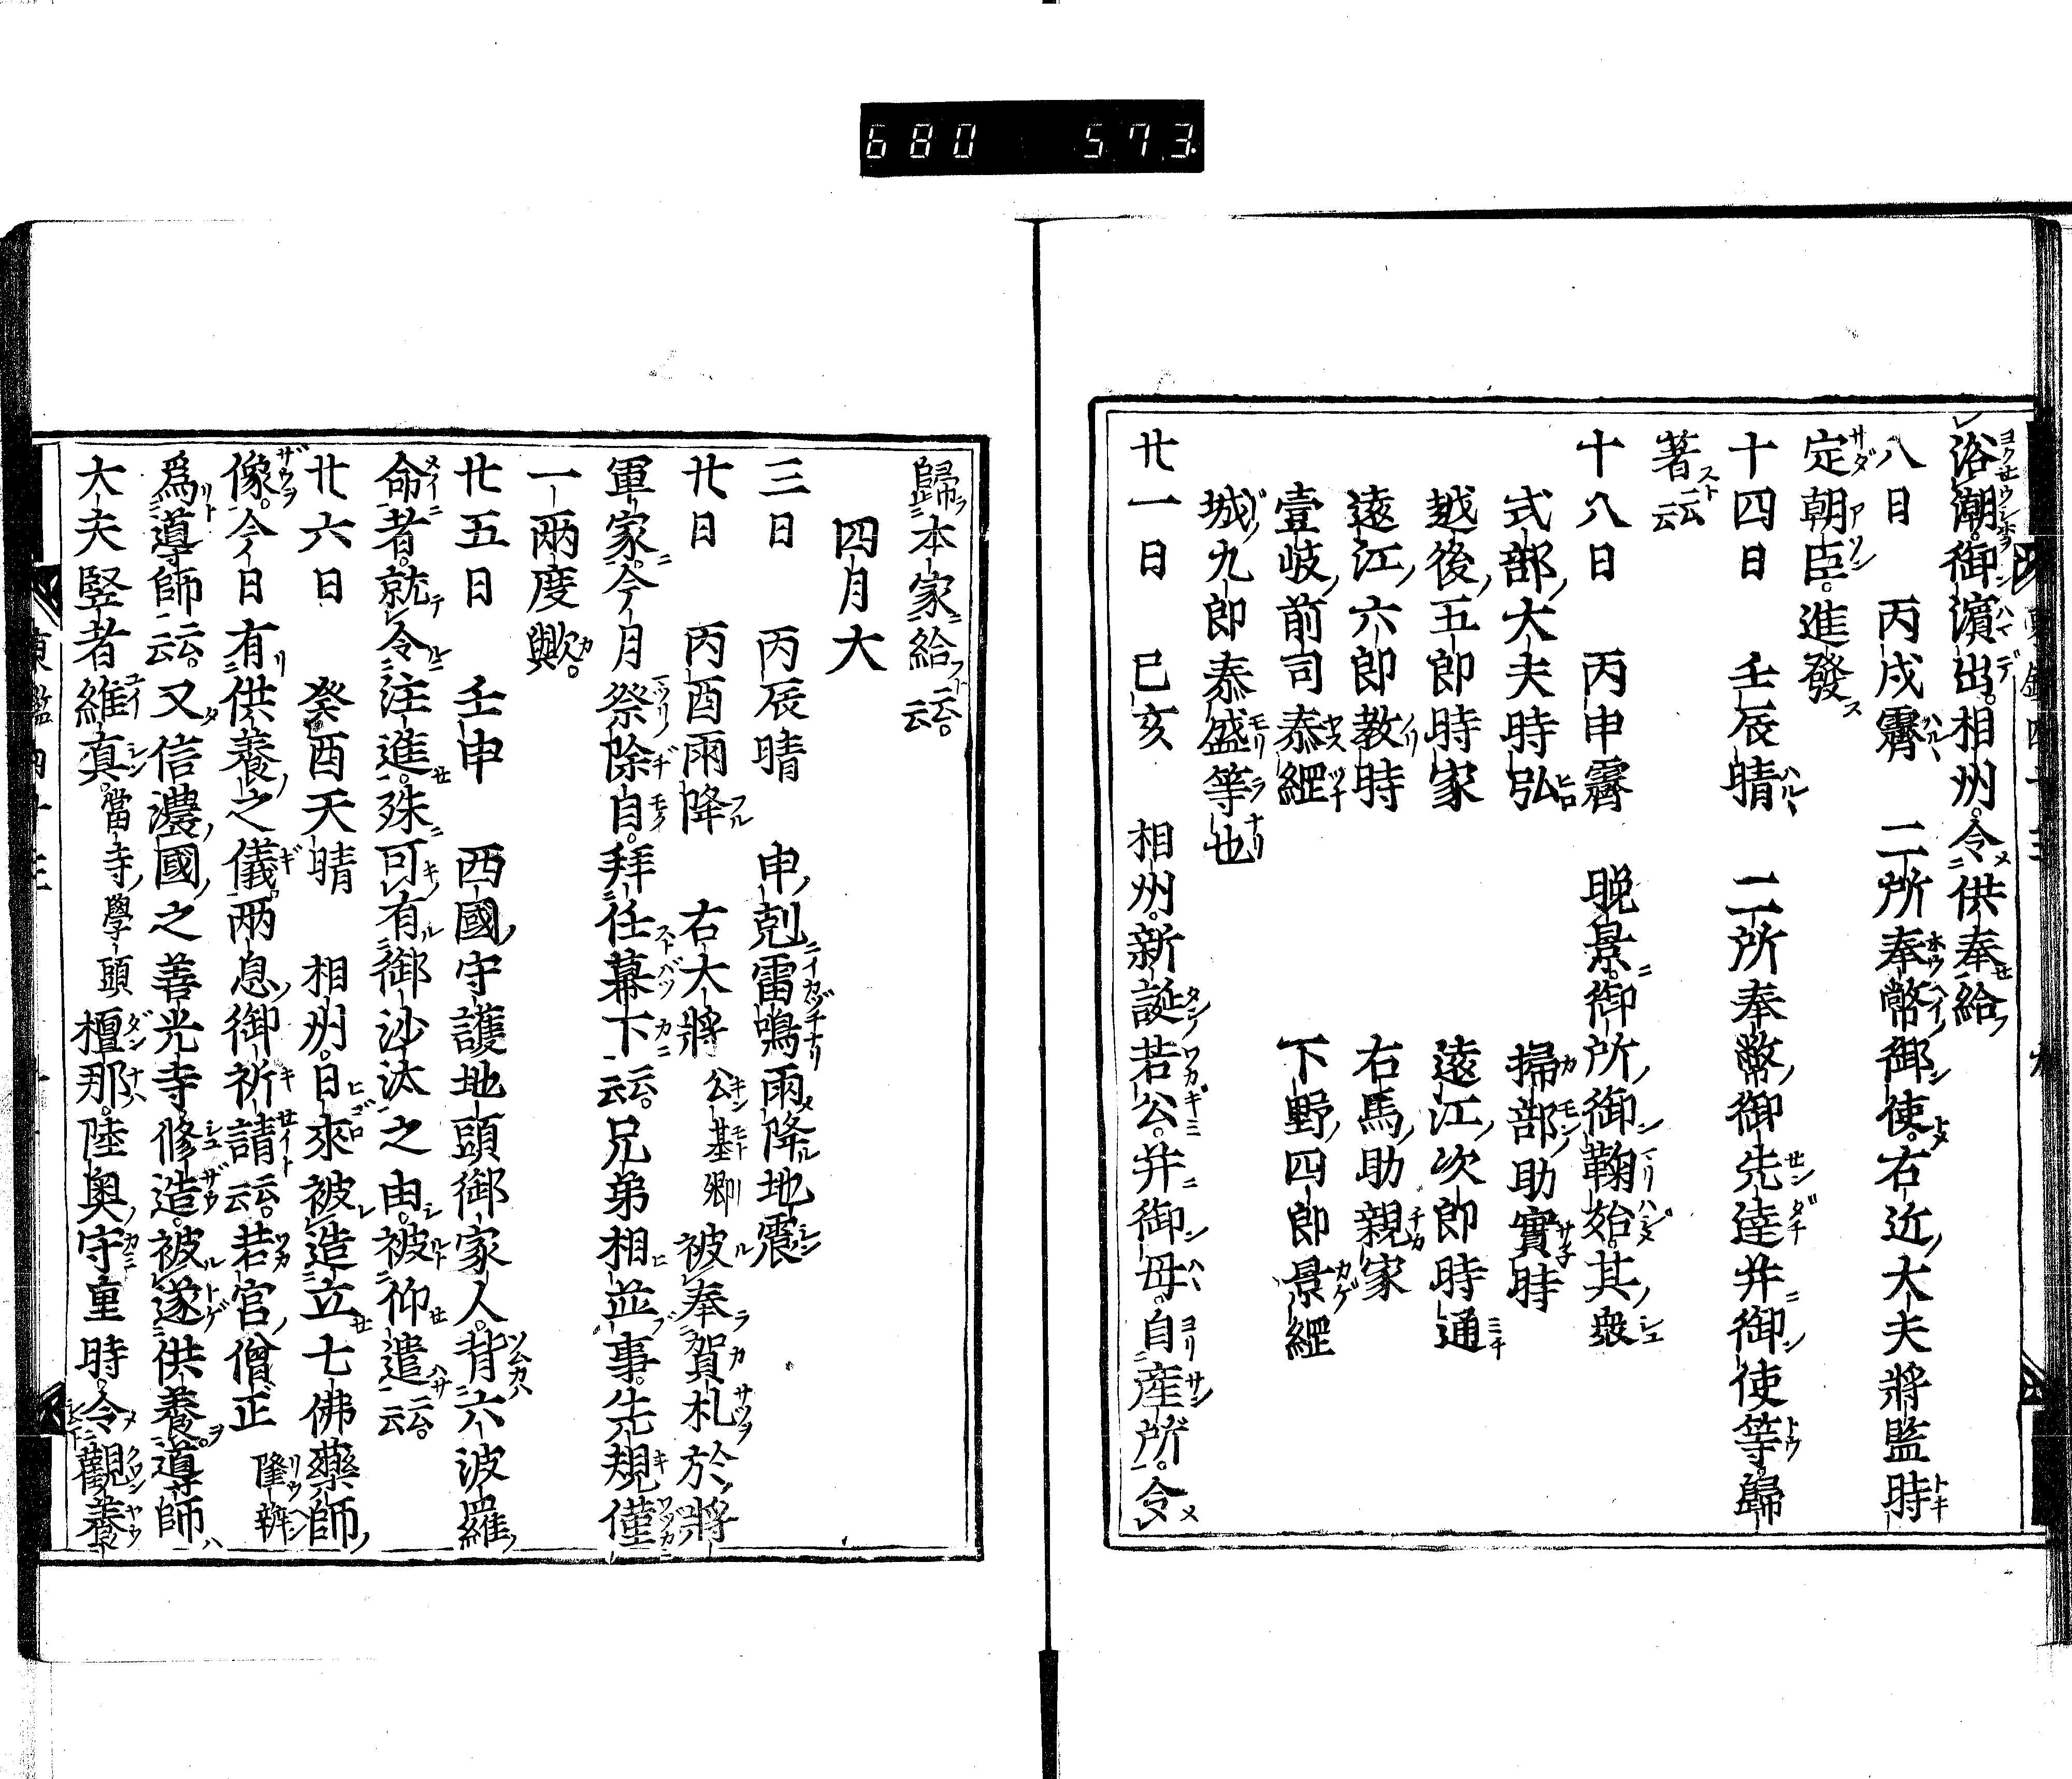 680 573.
浴潮。御濱出。相州。令供奉給
八日　丙戌霽　二所奉幣御使。右近大夫將監時
定朝臣。進發
十四日　壬辰晴　二所奉幣御先達并御使等。歸
著云云
十八日　丙申霽　晩景。御所御鞠始。其衆
式部大夫時弘　掃部助實時
越後五郎時家　遠江次郎時通
遠江六郎教時　右馬助親家
壹岐前司泰經　下野四郎景經
城九郎泰盛等也
廿一日　己亥　相州。新誕若公。并御母。自産所。令
歸本家給云云。
四月大
三日　丙辰晴　申剋雷鳴雨降地震
廿日　丙酉雨降　右大將公基卿被奉賀札於將
軍家。今月祭除自。拜任幕下云云。兄弟相並事。先規僅
一兩度歟。
廿五日　壬申　西國守護地頭御家人。背六波羅
命者。就令注進。殊可有御沙汰之由。被仰遣云云。
廿六日　癸酉天晴　相州。日來被造立七佛藥師
像。今日有供養之儀。兩息御祈請云云。若宮僧正隆辨
爲導師云云。又信濃國之善光寺修造。被遂供養。導師
大夫竪者維眞。當寺學頭檀那。陸奥守重時。令觀養